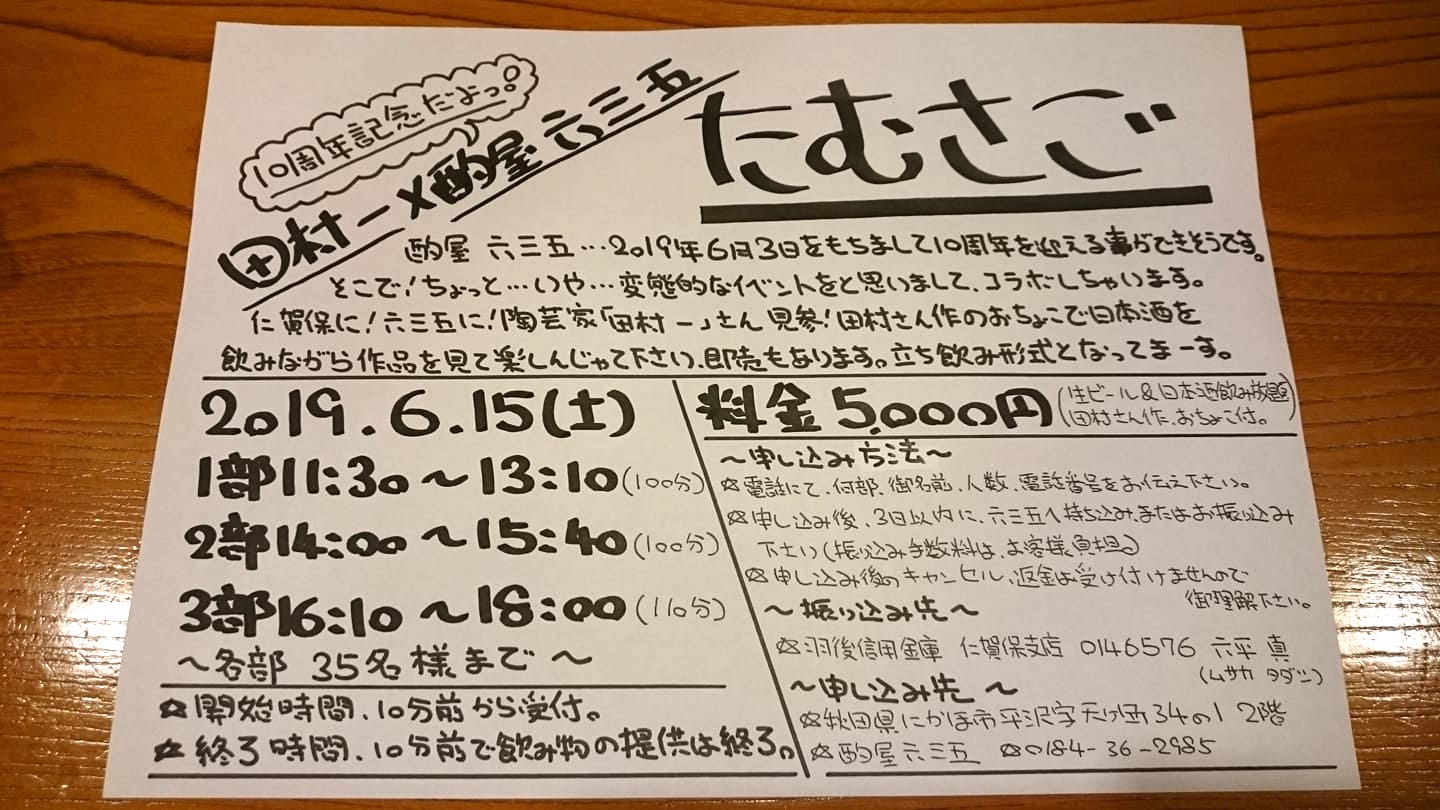 10周年記念だよっ!
田村一×酌屋 六三五
たむさご
酌屋 六三五…2019年6月3日をもちまして10周年を迎える事ができそうです。
そこで!ちょっと…いや…変態的なイベントをと思いまして、コラボしちゃいます。
仁賀保に!六三五に!陶芸家「田村一」さん見参!田村さん作のおちょこで日本酒を
飲みながら作品を見て楽しんじゃて下さい、即売もあります。立ち飲み形式となってまーす。
2019.6.15(土)
1部11:30〜13:10(100分)
2部14:00〜15:40(100分)
3部16:10〜18:00(110分)
〜各部 35名様まで〜
☆開始時間、10分前から受付。
☆終了時間、10分前で飲み物の提供は終了。
料金 5,000円(生ビール&日本酒飲み放題
田村さん作、おちょこ付。)
〜申し込み方法〜
☆電話にて、何部、御名前、人数、電話番号をお伝え下さい。
☆申し込み後、3日以内に、六三五へ持ち込み、またはお振り込み
下さい(振り込み手数料は、お客様負担。)
☆申し込み後のキャンセル、返金は受け付けませんので
御理解下さい。
〜振り込み先〜
☆羽後信用金庫 仁賀保支店 0146576 六平 真
(ムサカ タダシ)
〜申し込み先〜
☆秋田県にかほ市平沢字天ヶ町34の1 2階
☆酌屋六三五 ☆0184-36-2985